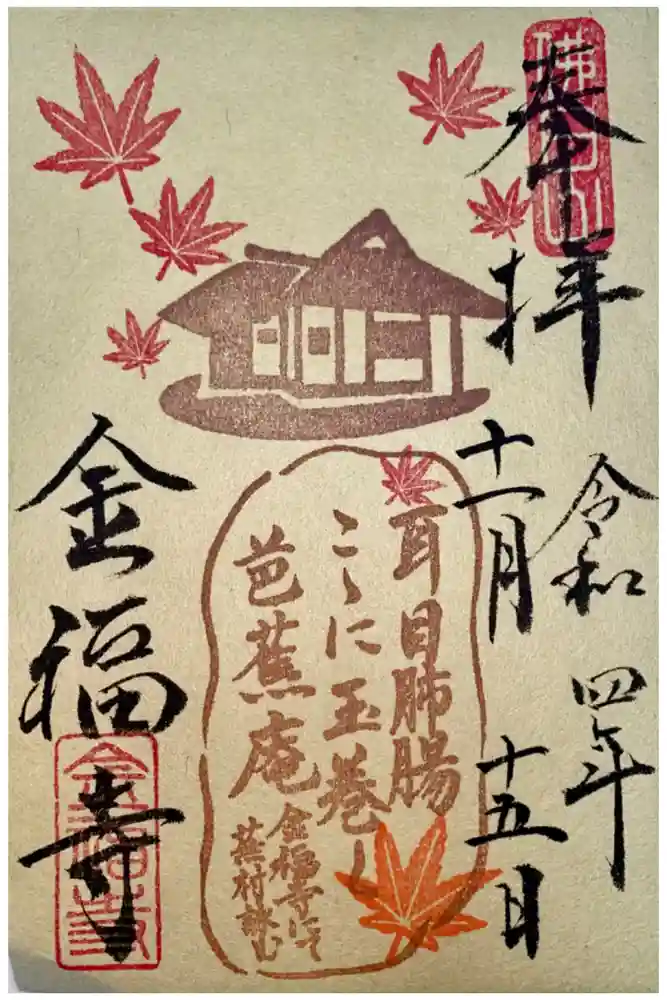 奉拝
令和四年
十一月十五日
耳目肺腸
こゝに玉巻く
芭蕉庵
金福寺にて
蕪村詠む
金福寺
金福寺